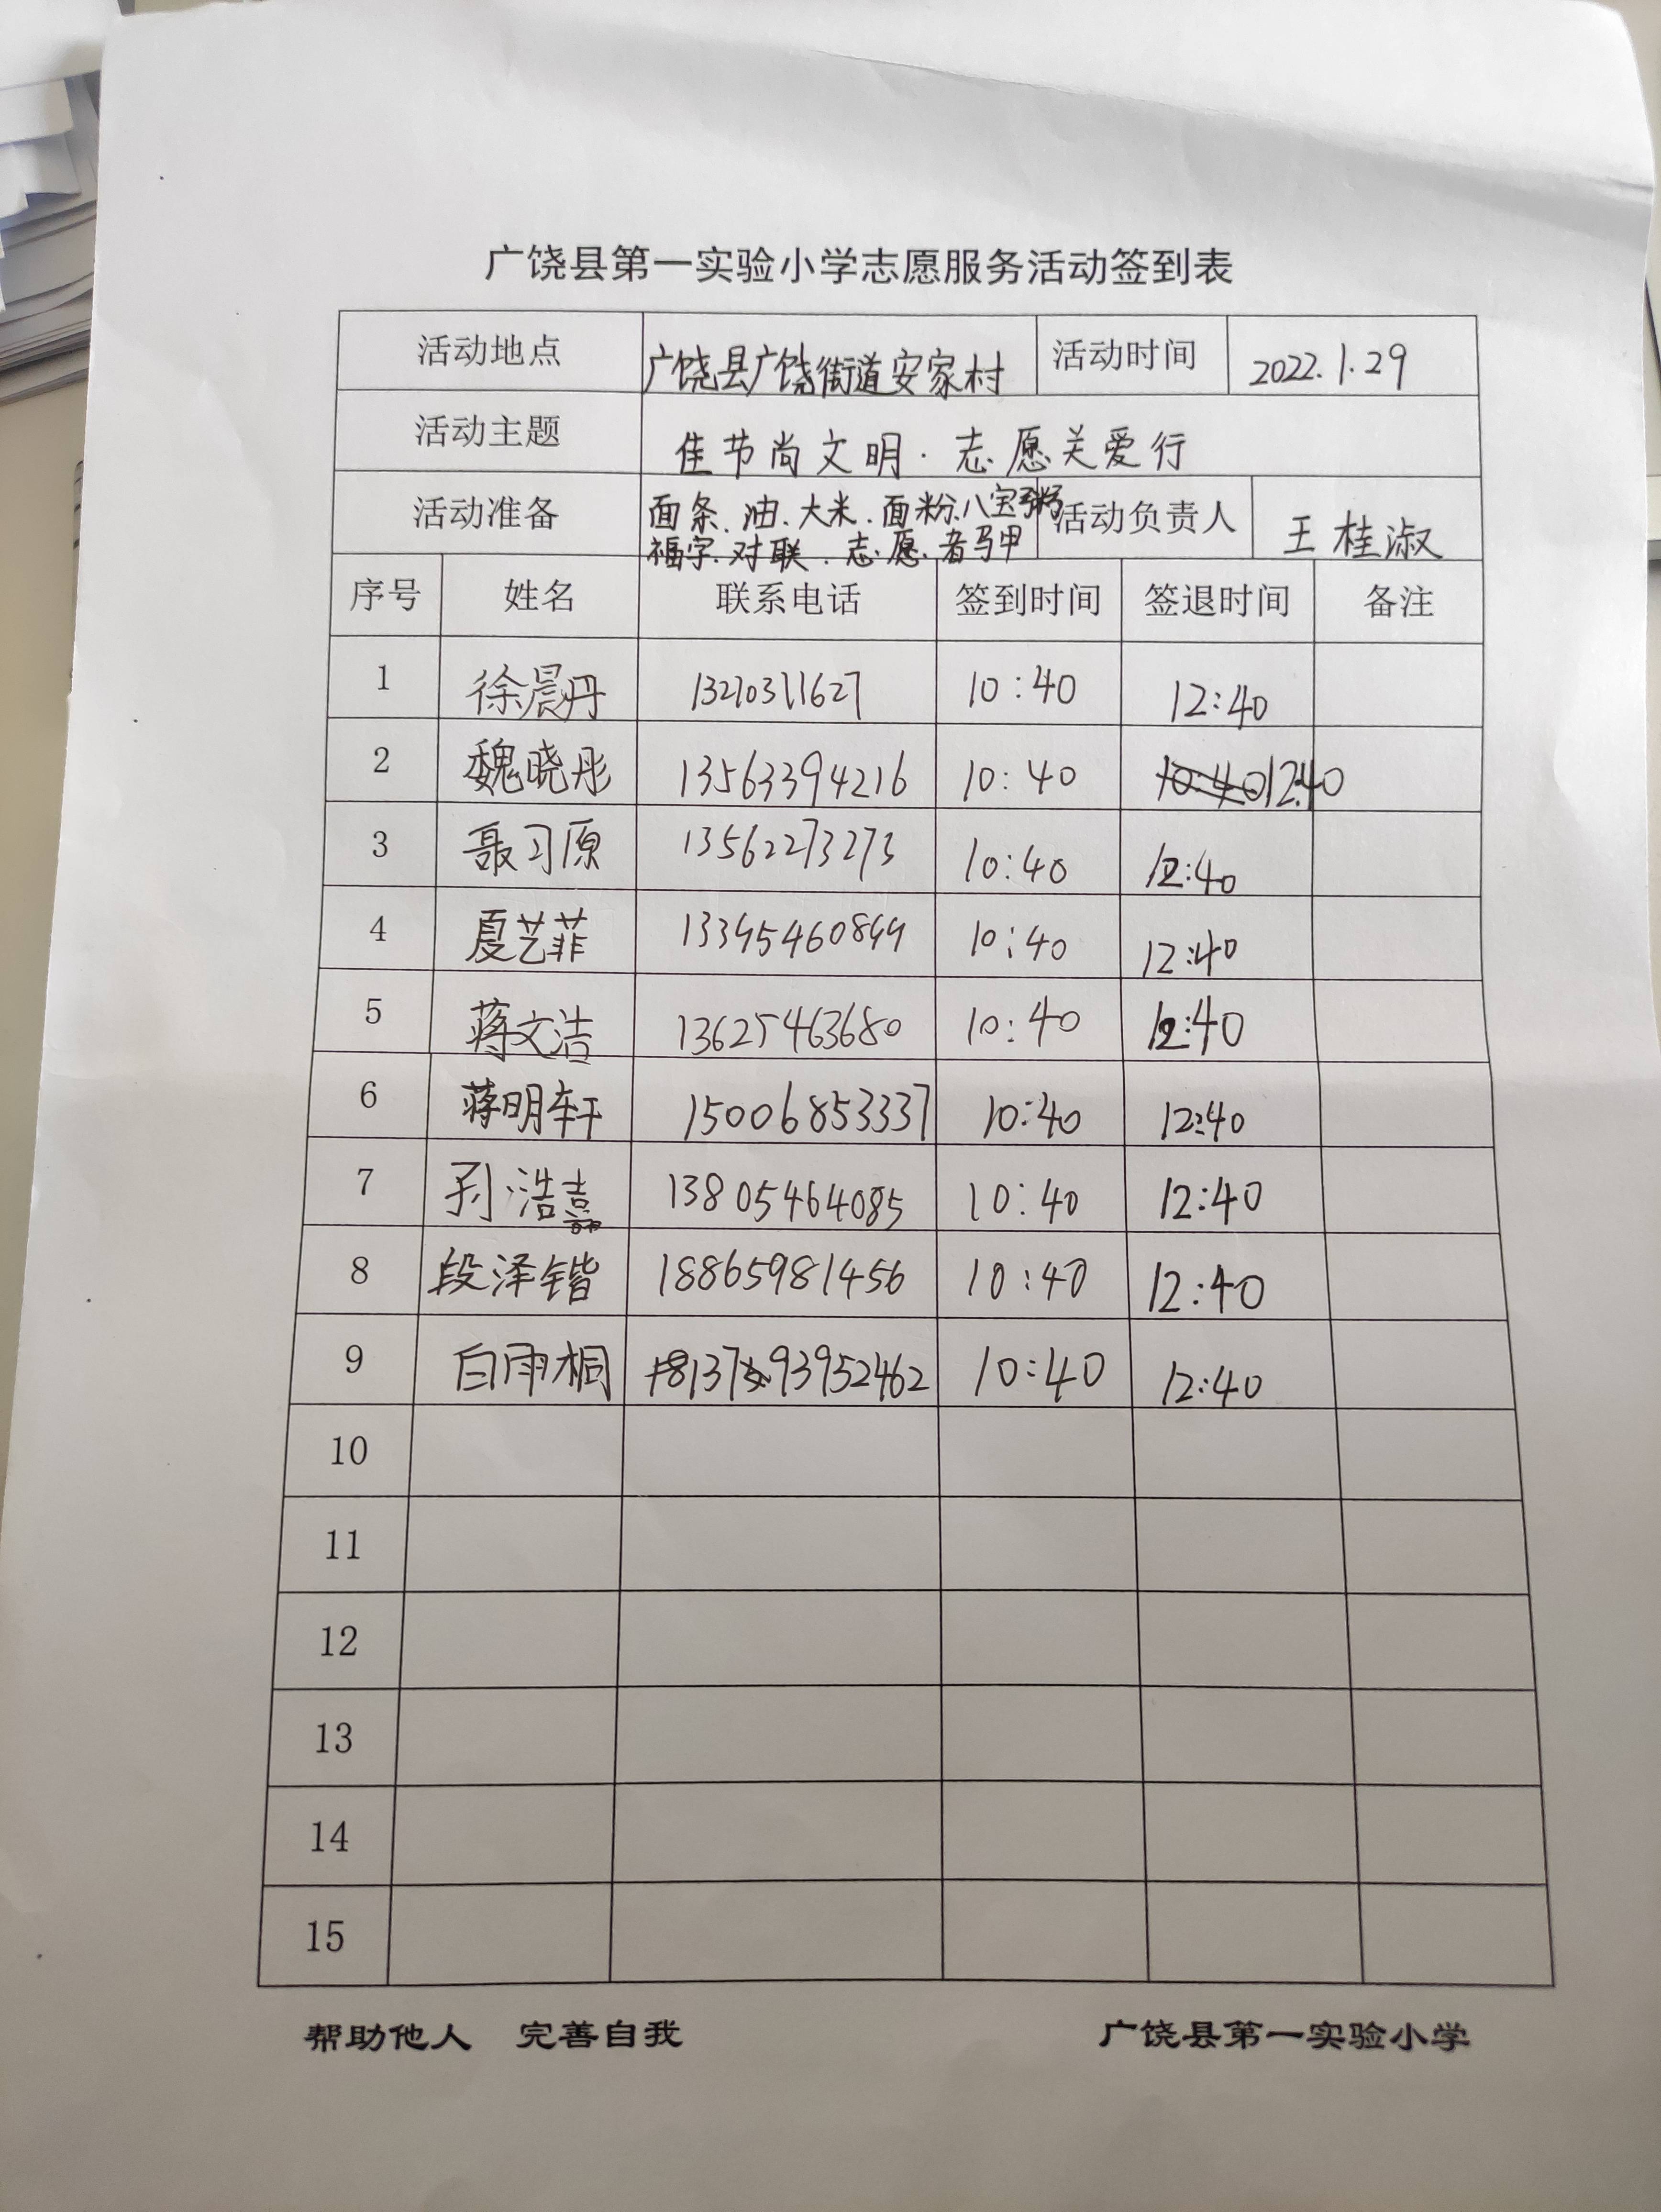 广饶县第一实验小学志愿服务活动签到表
活动地点 广饶县广饶街道安家村 活动时间 2022.1.29
活动主题 佳节尚文明·志愿关爱行
活动准备 面条、油、大米、面粉、八宝粥 活动负责人 王桂淑
福字、对联、志愿者马甲
序号 姓名 联系电话 签到时间 签退时间 备注
1 徐晨丹 13210311627 10:40 12:40
2 魏晓彤 13563394216 10:40 12:40
3 聂习原 13562273273 10:40 12:40
4 夏艺菲 10:40 12:40
5 蒋文洁 13625463680 10:40 12:40
6 蒋明轩 15006853337 10:40 12:40
7 孙浩喆 13805464085 10:40 12:40
8 段泽锴 18865981456 10:40 12:40
9 白雨桐 13793952462 10:40 12:40
10
11
12
13
14
15
帮助他人 完善自我 广饶县第一实验小学